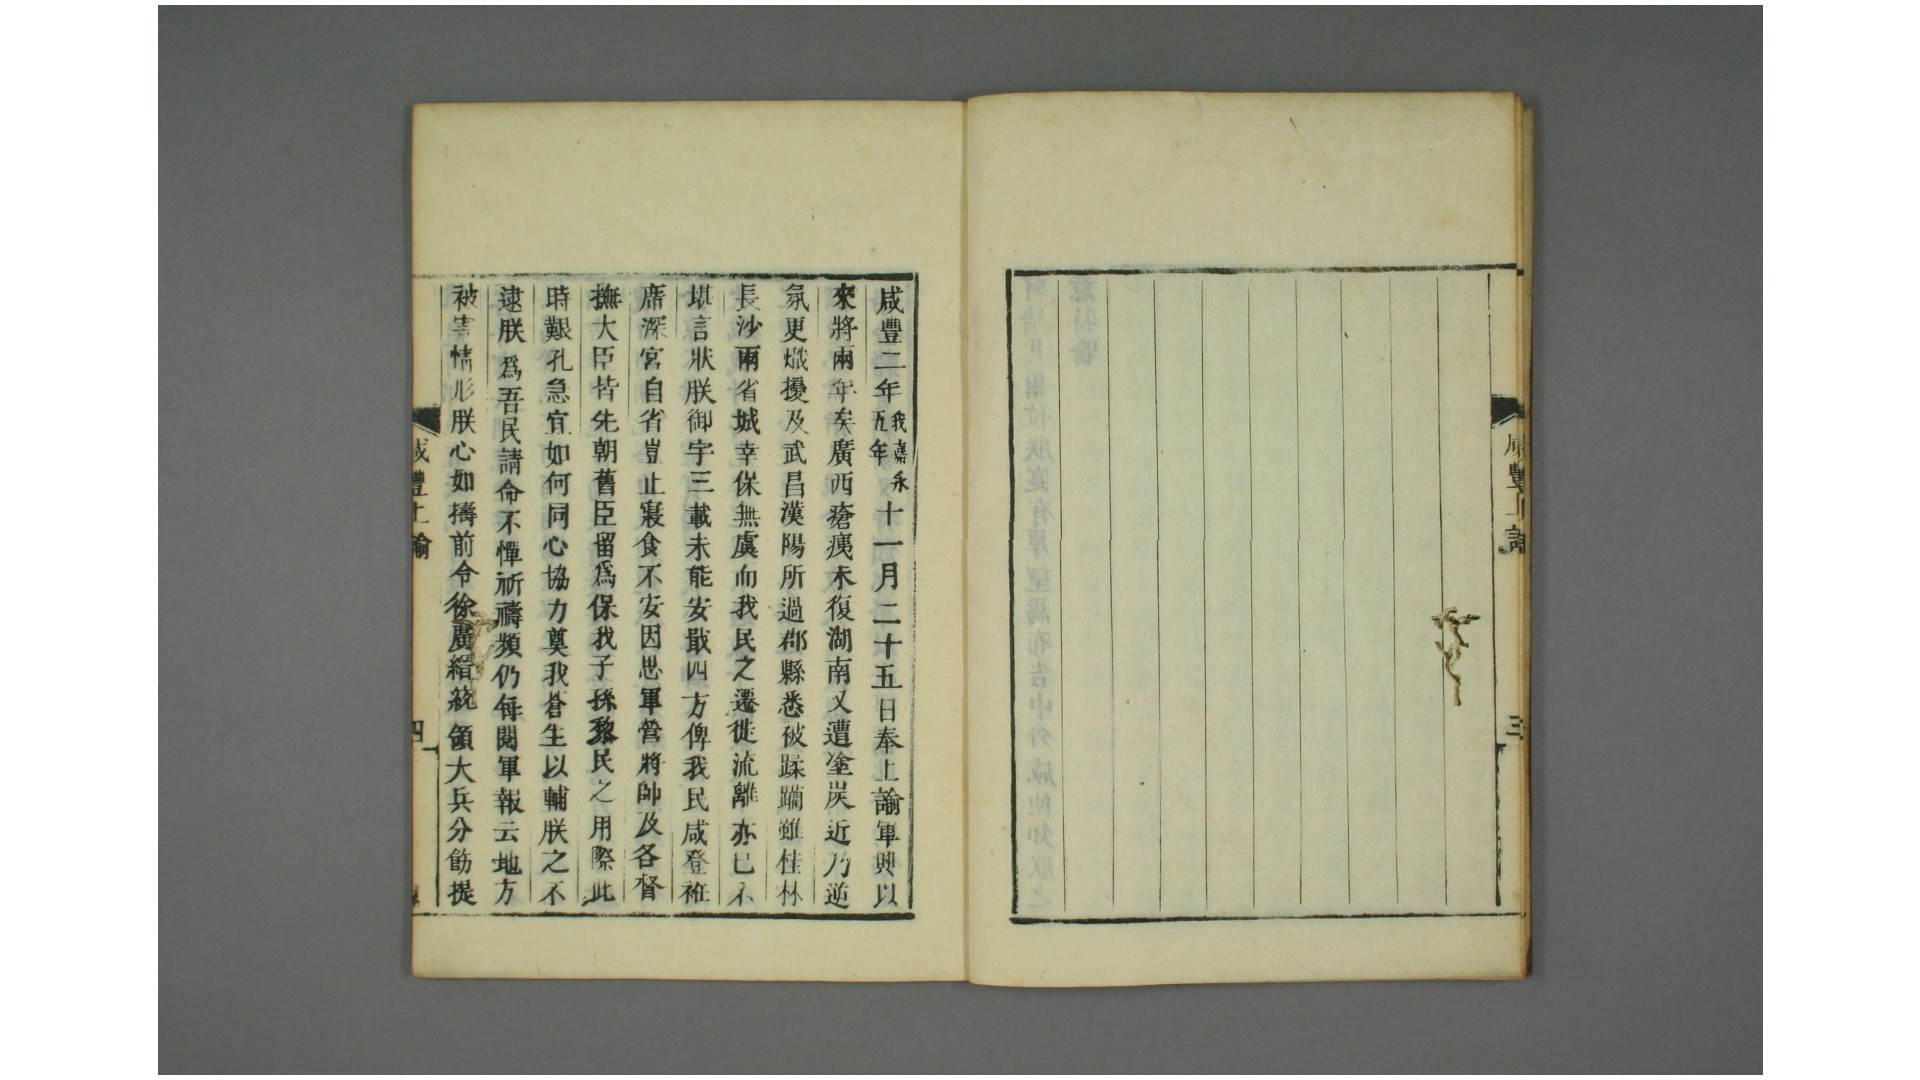 咸豐上諭
三
咸豐二年我嘉永五年十一月二十五日奉上諭軍興以
來將兩年矣廣西瘡痍未復湖南又遭塗炭近乃逆
氛更熾擾及武昌漢陽所過郡縣悉被蹂躪雖桂林
長沙兩省城幸保無虞而我民之遷徙流離亦已不
堪言狀朕御宇三載未能安戢四方俾我民咸登袵
席深宮自省豈止寢食不安因思軍營將帥及各督
撫大臣皆先朝舊臣留爲保我子孫黎民之用際此
時艱孔急宜如何同心協力奠我蒼生以輔朕之不
逮朕爲吾民請命不憚祈禱頻仍每閱軍報云地方
被害情形朕心如擣前令徐廣縉統領大兵分飭提
咸豐上諭
四